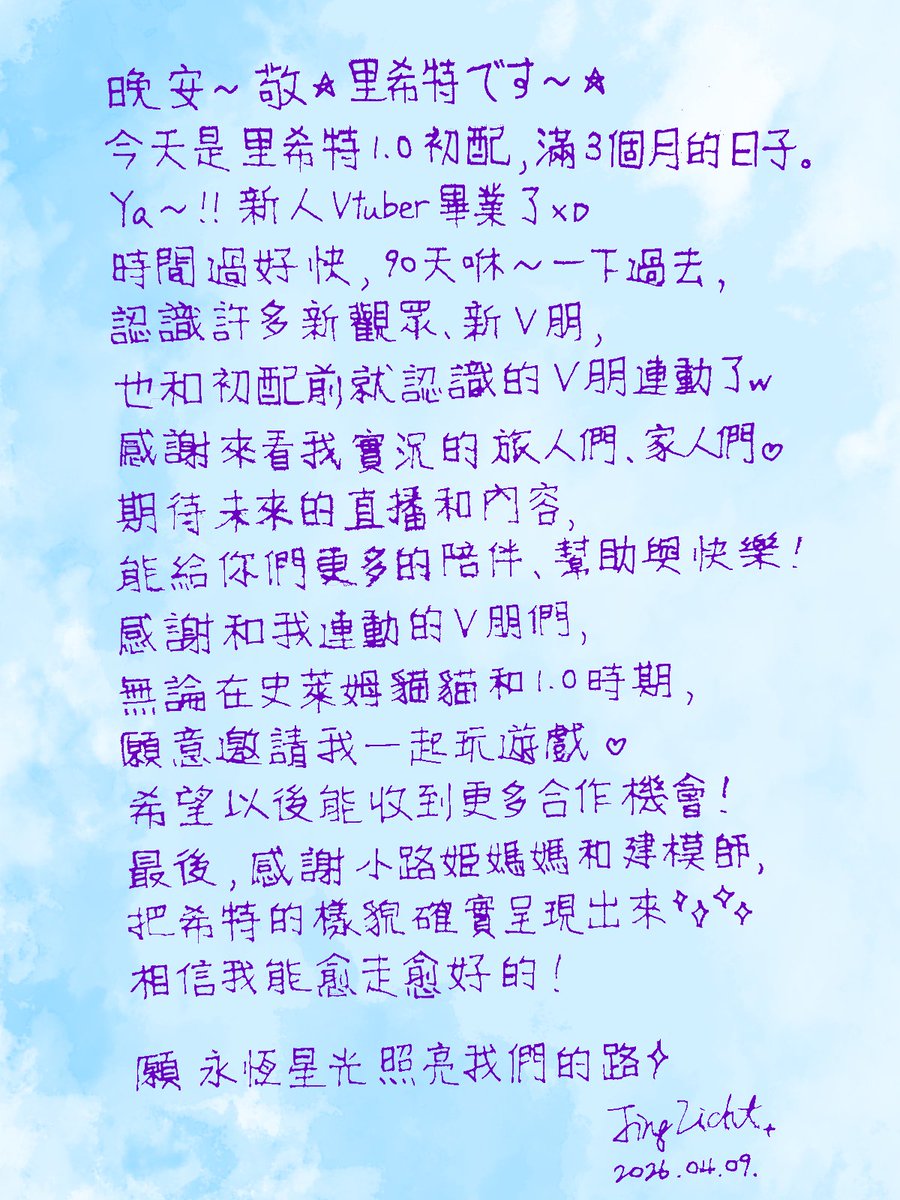 晚安~敬☆里希特です~☆
今天是里希特1.0初配,滿3個月的日子。
Ya~!!新人Vtuber畢業了xD
時間過好快,90天咻~一下過去,
認識許多新觀眾、新V朋,
也和初配前就認識的V朋連動了w
感謝來看我實況的旅人們、家人們♡
期待未來的直播和內容,
能給你們更多的陪伴、幫助與快樂!
感謝和我連動的V朋們,
無論在史萊姆貓貓和1.0時期,
願意邀請我一起玩遊戲♡
希望以後能收到更多合作機會!
最後,感謝小路姬媽媽和建模師,
把希特的樣貌確實呈現出來✧✧✧✧
相信我能愈走愈好的!
願 永恆星光照亮我們的路✧
Jing Licht
2026.04.09.